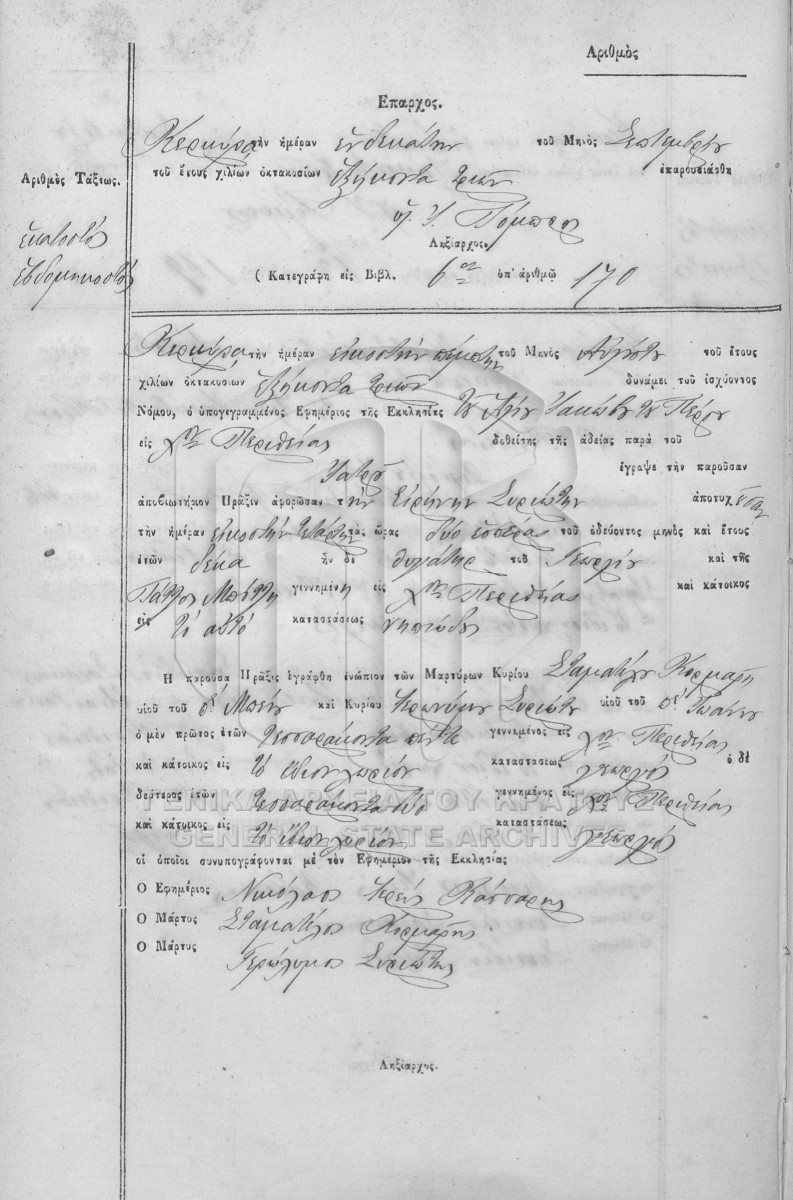 Αριθμὸς
Επαρχος.
Κερκύρα τὴν ἡμέραν ἑνδεκάτην τοῦ Μηνὸς Σεπτεμβρίου
τοῦ ἔτους χιλίων ὀκτακοσίων ἑξήκοντα τριῶν ἐπαρουσιάσθη
Αριθμὸς Τάξεως.
ἑκατοστός
ἑβδομηκοστός
Ληξίαρχος.
( Κατεγράφη εἰς Βιβλ. 6ον ὑπ' ἀριθμῷ 170
Κερκύρα τὴν ἡμέραν εἰκοστὴν πέμπτην τοῦ Μηνὸς Αὐγούστου τοῦ ἔτους
χιλίων ὀκτακοσίων ἑξήκοντα τριῶν δυνάμει τοῦ ἰσχύοντος
Νόμου, ὁ ὑπογεγραμμένος Εφημέριος τῆς Εκκλησίας τοῦ Ἁγίου Ἰακώβου τοῦ Πέρσου
εἰς χον Περιθείας δοθείσης τῆς ἀδείας παρὰ τοῦ
Ἰατροῦ ἔγραψε τὴν παροῦσαν
ἀποβιωτήριον Πρᾶξιν ἀφορῶσαν τὴν Εἰρήνην Συριώτην ἀποτυχοῦσαν
τὴν ἡμέραν εἰκοστὴν τετάρτην τὰς ὥρας δύο ἑσπέρας τοῦ ὁδεύοντος μηνὸς καὶ ἔτους
ἐτῶν δέκα ἦν δὲ θυγάτηρ τοῦ Γεωργίου καὶ τῆς
γεννημένη εἰς χον Περιθείας καὶ κάτοικος
εἰς τὸ αὐτὸ καταστάσεως νηπιώδες
Η παροῦσα Πρᾶξις ἐγράφθη ἐνώπιον τῶν Μαρτύρων Κυρίου Σταματέλου Κερμαρη
υἱοῦ τοῦ καὶ Κυρίου Ἱερωνύμου Συριώτη υἱοῦ τοῦ πε Ἰωάννου
ὁ μὲν πρῶτος ἐτῶν τεσσαράκοντα πέντε γεννημένος εἰς χον Περιθείας
καὶ κάτοικος εἰς τὸ ἴδιον χωρίον καταστάσεως γεωργός ὁ δὲ
δεύτερος ἐτῶν τεσσαράκοντα δύο γεννημένος εἰς χον Περιθείας
καὶ κάτοικος εἰς τὸ ἴδιον χωρίον καταστάσεως γεωργός
οἱ ὁποῖοι συνυπογράφονται μὲ τὸν Εφημέριον τῆς Εκκλησίας
Ο Εφημέριος Νικόλαος Ἱερεύς Κάσσαρης
Ο Μάρτυς Σταματέλος Κερμαρης
Ο Μάρτυς Γερώλυμος Συριώτης
Ληξίαρχος.
ΓΕΝΙΚΑ ΑΡΧΕΙΑ ΤΟΥ ΚΡΑΤΟΥΣ
GENERAL STATE ARCHIVES